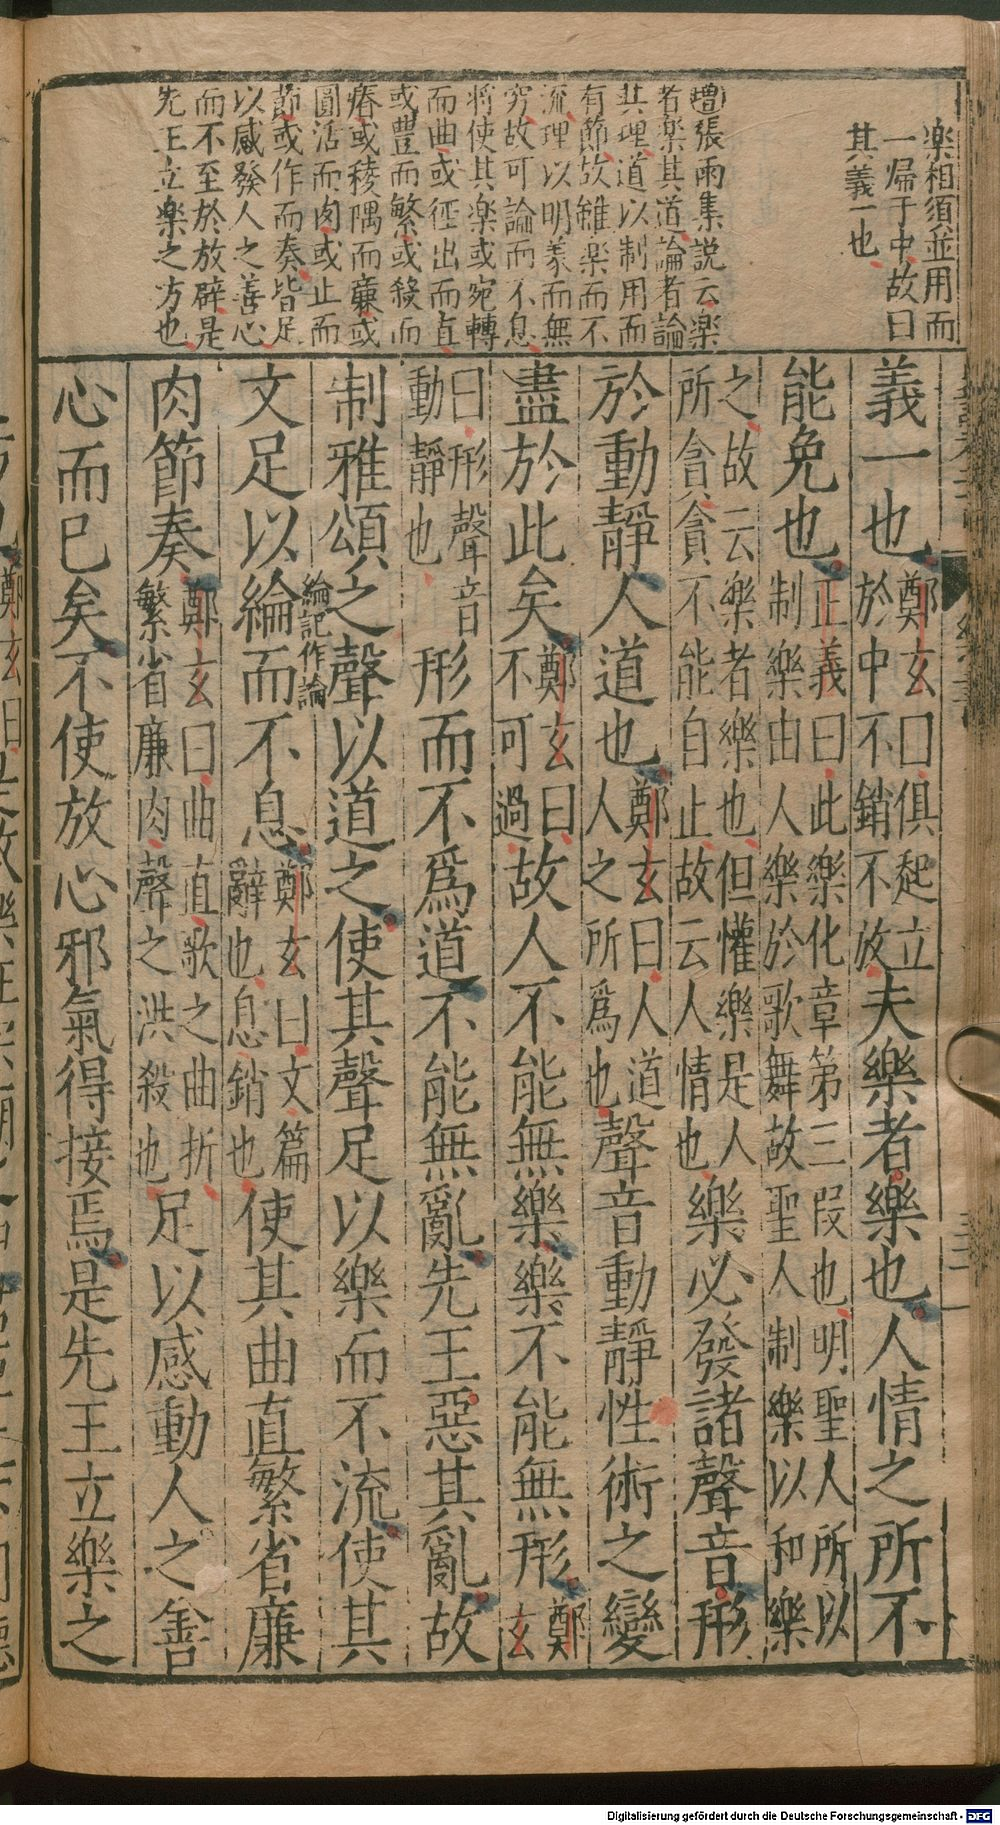 楽相須並用而
一帰于中故曰
其義一也
増張雨集説云楽
者楽其道論者論
其理道以制用而
有節故雖楽而不
流理以明義而無
窮故可論而不息
将使其楽或宛轉
而曲或徑出而直
或豊而繁或殺而
瘠或稜隅而廉或
圓活而肉或止而
節或作而奏皆足
以感發人之善心
而不至於放辟是
先王立楽之方也
義一也
鄭玄曰俱起立
於中不銷不放
夫樂者樂也人情之所不
能免也
正義曰此樂化章第三段也明聖人所以
制樂由人樂於歌舞故聖人制樂以和樂
之故云樂者樂也但懽樂是人
所貪貪不能自止故云人情也
樂必發諸聲音形
於動靜人道也
鄭玄曰人道
人之所爲也
聲音動靜性術之變
盡於此矣
鄭玄曰
不可過
故人不能無樂樂不能無形
鄭
玄
曰形聲音
動靜也
形而不爲道不能無亂先王惡其亂故
制雅頌之聲以道之使其聲足以樂而不流使其
文足以綸而不息
綸記作論
鄭玄曰文篇
辭也息銷也
使其曲直繁省廉
肉節奏
鄭玄曰曲直歌之曲折
繁省廉肉聲之洪殺也
足以感動人之善
心而已矣不使放心邪氣得接焉是先王立樂之
Digitalisierung gefördert durch die Deutsche Forschungsgemeinschaft - DFG